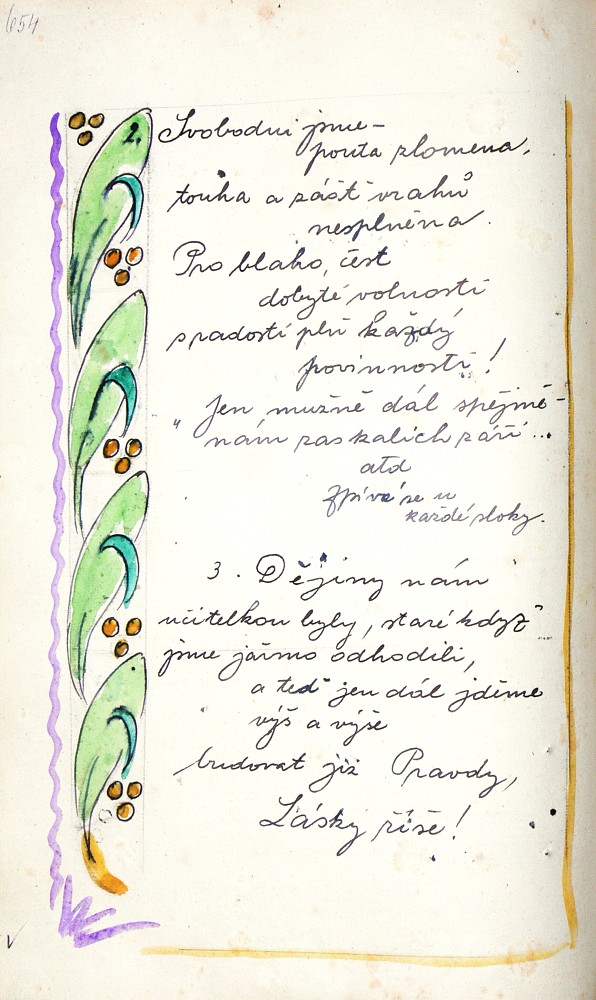 654
2. Svobodni jsme –
pouta zlomena,
touha a zášť vrahů
nesplněna.
Pro blaho, čest
dobyté volnosti
s radostí plň každý
povinnosti!
„Jen mužně dál spějmě –
nám zas kalich září...
atd
Zpívá se u
každé sloky.
3. Dějiny nám
učitelkou byly, staré když
jsme jařmo odhodili,
a teď jen dál jděme
výš a výše
budovat již Pravdy,
Lásky říše!
V